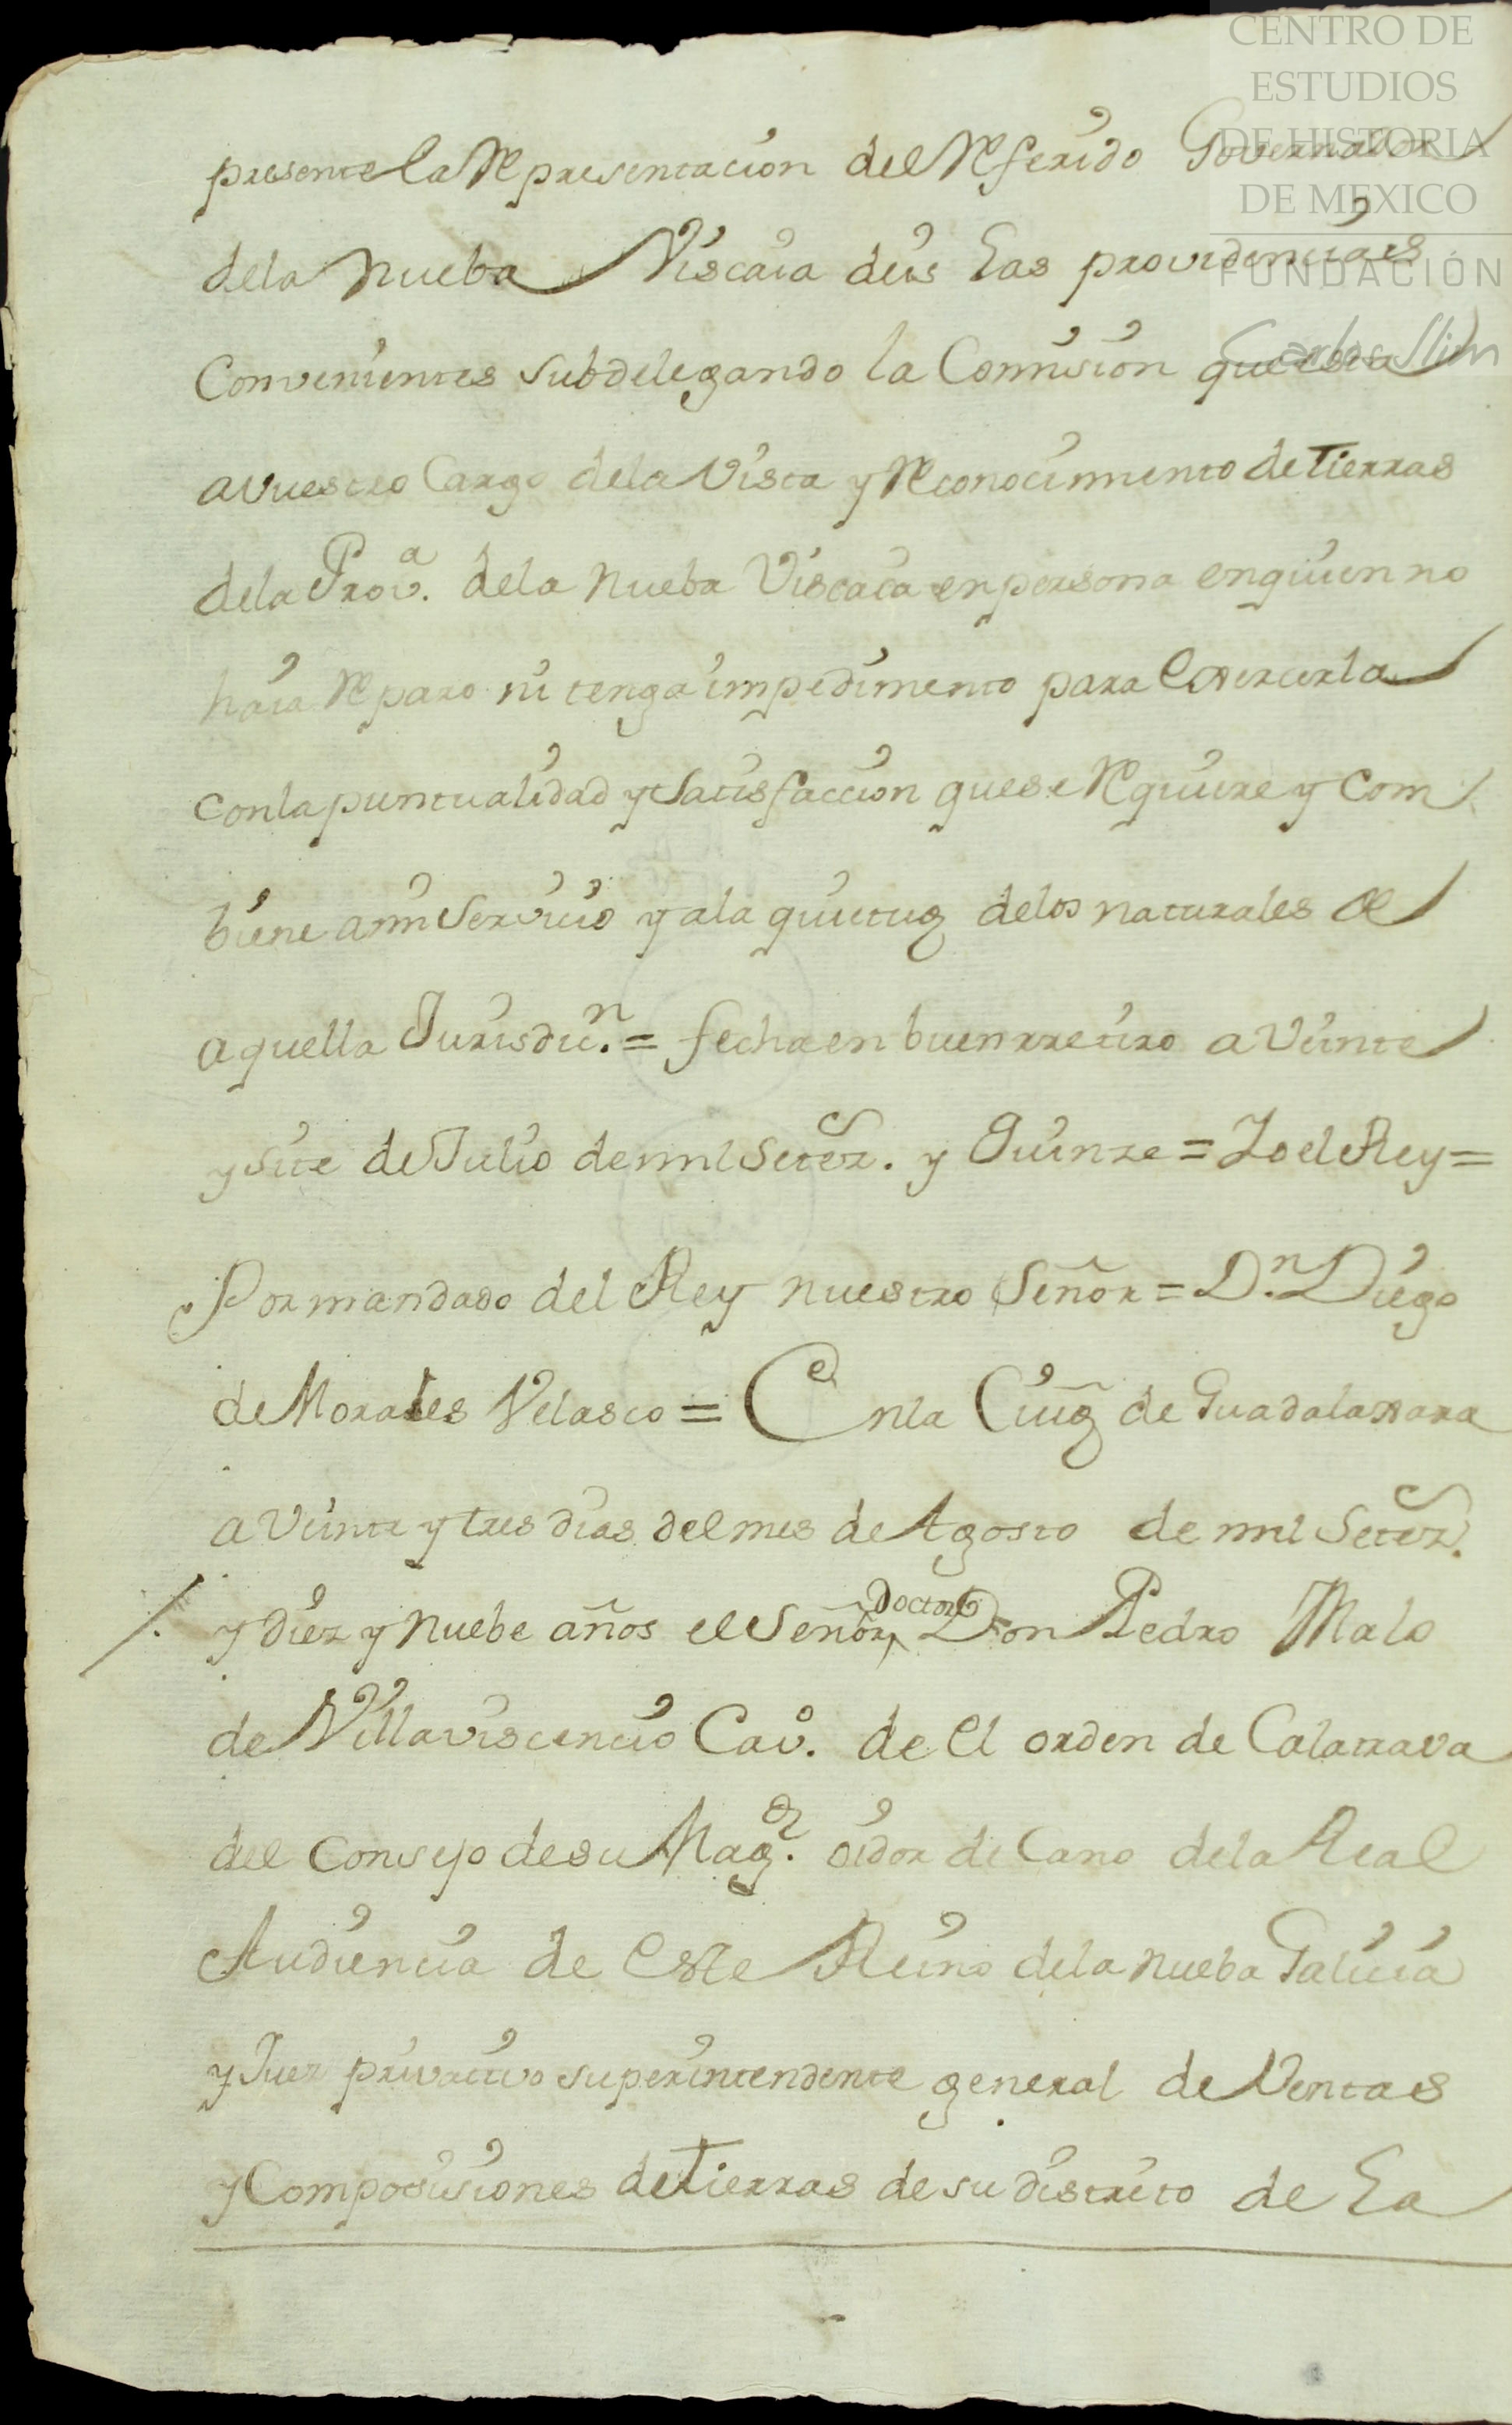 CENTRO DE
ESTUDIOS
DE HISTORIA
DE MEXICO
FUNDACIÓN
Carlos Slim
presente la Representacion del Referido Governador
dela Nueba Viscaia deis las providencias
Convenientes subdelegando la Comision que esta
a vuestro Cargo dela Vista y Reconocimiento de Tierras
dela Prov.ª dela Nueba Viscaia en persona en quien no
haia Reparo ni tenga impedimento para Exercerla
con la puntualidad y satisfaccion que se Requiere y Com
biene a mi Servicio y ala quietud delos naturales de
aquella Jurisdic.n = fecha en buen rretiro a Veinte
y siete de Julio de mil Setez.s y Quinze = Yo el Rey =
Por mandado del Rey nuestro Señor = D.n Diego
de Morales Velasco = En la Ciud de Guadalaxara
a Veinte y tres dias del mes de Agosto de mil Setez.s
y diez y nuebe años el Señor Doctor Don Pedro Malo
de Villaviscencio Cav.o de el orden de Calatrava
del Consejo de su Mag.d oidor de Cano dela Real
Audiencia de Este Reino dela Nueba Galicia
y Juez privativo superintendente general de Ventas
y Composisiones de Tierras de su distrito de la